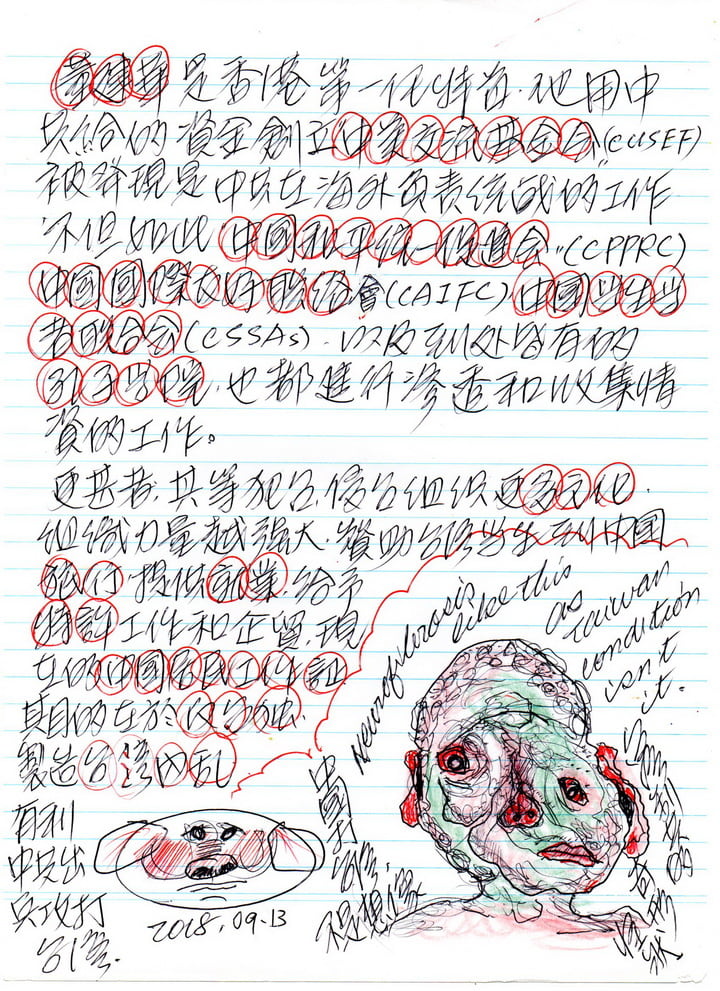 董建華是香港第一任特首.他用中
共給的資金創立中美交流基金会"(CUSEF)
被發現是中共在海外負責統战的工作
不但如此.中國和平統一促進会"(CCPPRC)
中國國際友好联络會(CAIFC)中國学生学
者联合会(CSSAs).以及到处皆有的
孔子学院.也都進行滲透和收集情
資的工作。
更甚者.其等犯台.侵台組织更多文化.
組織力量越強大.贊助台灣学生到中國
旅行.提供就業.給予
特許工作和企業.現
在的中國居民工作証
期的在於反分独.
製造台灣內乱
有利
中共出
兵攻打
台灣.
2018.09.13
Neurofiborosis
like this
as
Taiwan
condition
isn't
it.
中國打
台灣.
不是想像